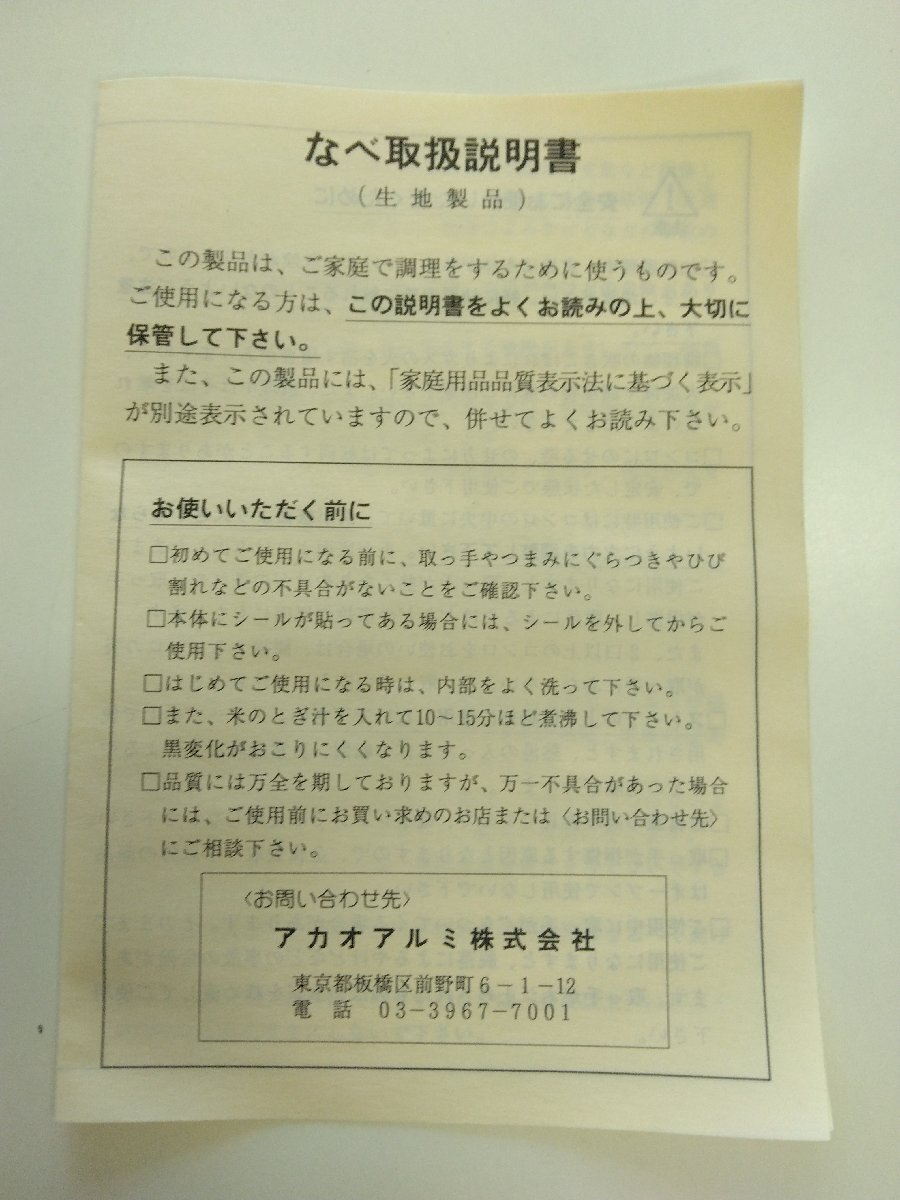 なべ取扱説明書
(生地製品)
この製品は、ご家庭で調理をするために使うものです。
ご使用になる方は、この説明書をよくお読みの上、大切に
保管して下さい。
また、この製品には、「家庭用品品質表示法に基づく表示」
が別途表示されていますので、併せてよくお読み下さい。
お使いいただく前に
□初めてご使用になる前に、取っ手やつまみにぐらつきやひび
割れなどの不具合がないことをご確認下さい。
□本体にシールが貼ってある場合には、シールを外してからご
使用下さい。
□はじめてご使用になる時は、内部をよく洗って下さい。
□また、米のとぎ汁を入れて10〜15分ほど煮沸して下さい。
黒変化がおこりにくくなります。
□品質には万全を期しておりますが、万一不具合があった場合
には、ご使用前にお買い求めのお店または〈お問い合わせ先〉
にご相談下さい。
〈お問い合わせ先〉
アカオアルミ株式会社
東京都板橋区前野町6-1-12
電話 03-3967-7001